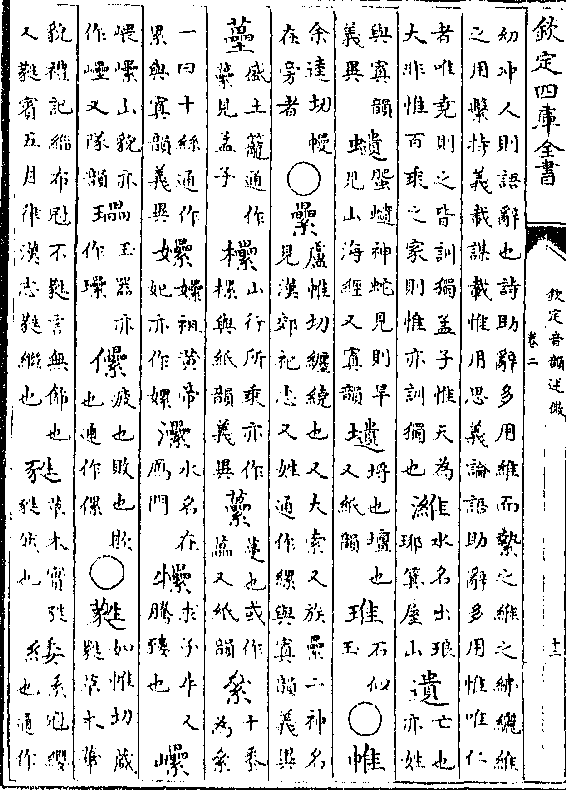 欽定四庫全書
欽定音韻述微
卷二
十二
幼沖人則語辭也詩助辭多用維而縶之維之紼纚維
之用縶持義載謀載惟用思義論語助辭多用惟唯仁
者唯堯則之皆訓獨孟子惟天為
大非惟百乘之家則惟亦訓獨也
濰水名出琅琊箕屋山
遺亡也亦姓
與寘韻義異
神蛇見則旱見山海經又寘韻
壝埒也壇也又紙韻
琟石似玉
○帷
余逵切幔在旁者
○纍盧惟切纏繞也又大索又族纍二神名
見漢郊祀志又姓通作縲與寘韻義異
虆盛土籠通作蔂見孟子
欙山行所乘亦作樏與紙韻義異
蔓也或作藟又紙韻
絫十黍為絫
一曰十絲通作累與寘韻義異
嫘祖黃帝妃亦作嫘
灅水名在鴈門
求子牛又騰也
山貌亦作又隊韻
瓃玉器亦作
儽疲也敗也欺也通作傫
○蕤如惟切葳蕤草木華
貌禮記緇布冠不蕤言無飾也
又蕤賓五月律漢志蕤繼也
甤草木實甤甤然也
緌系冠纓也通作